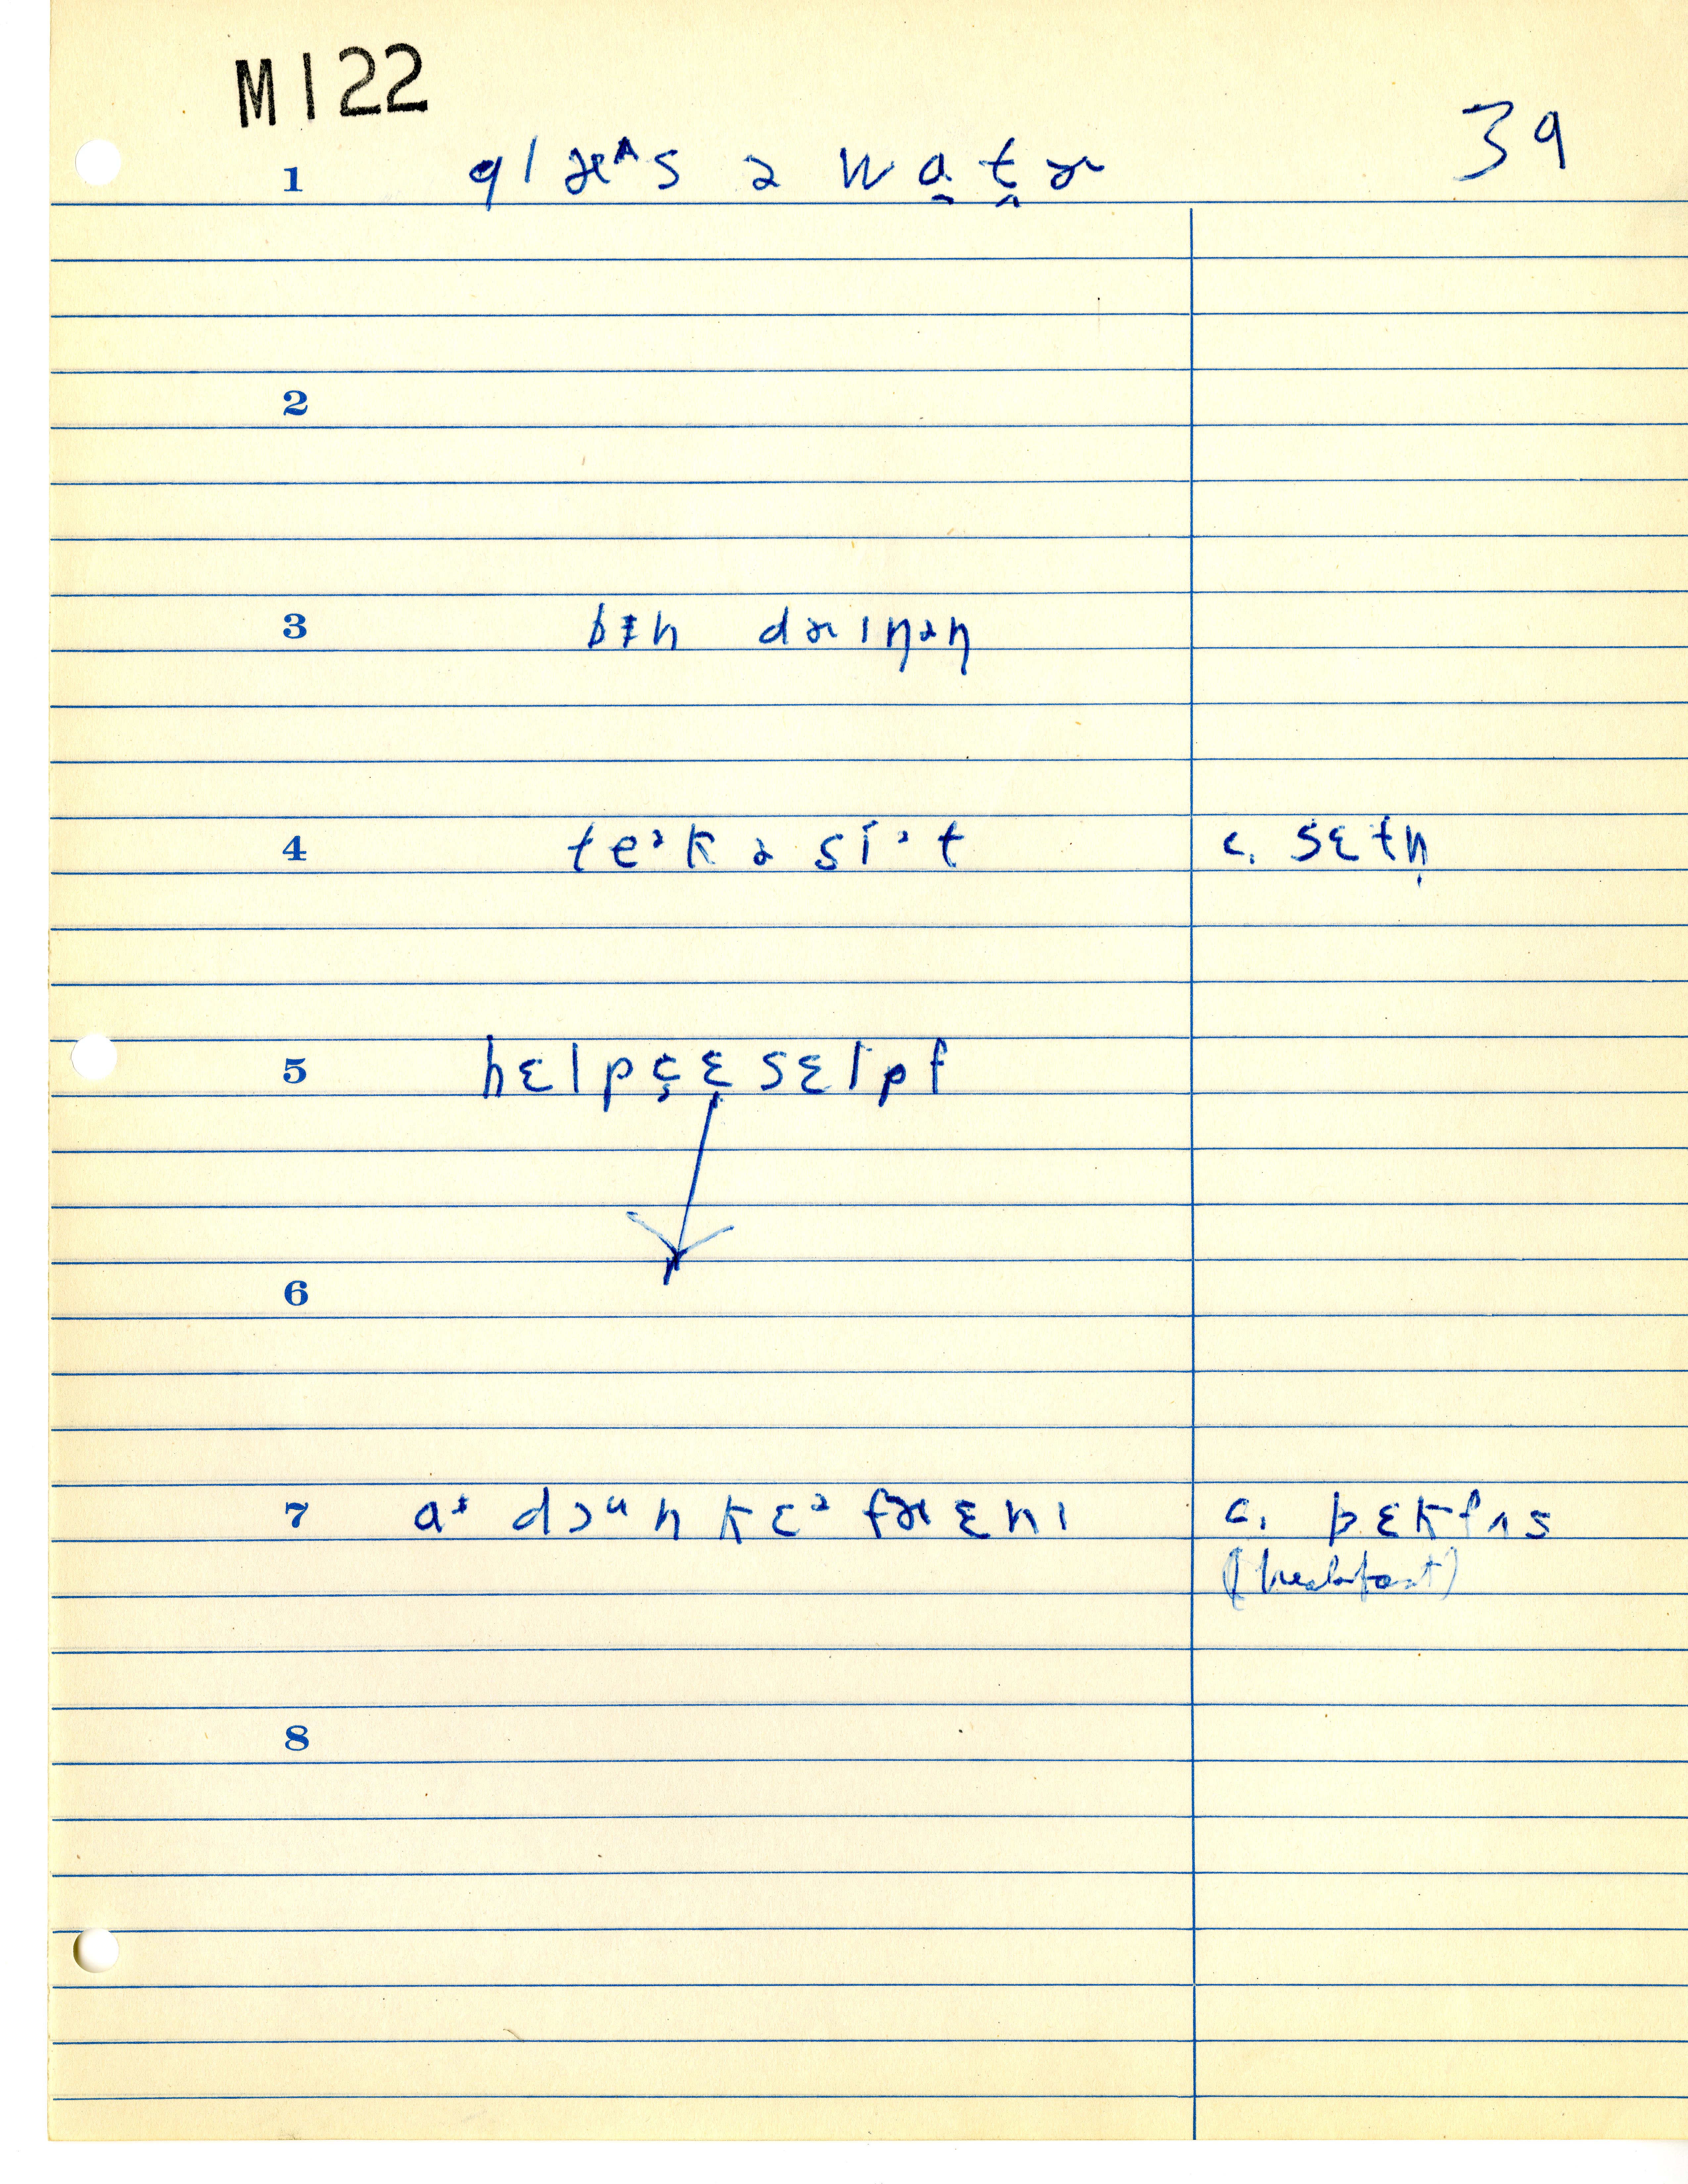 M122
39
1 glæᴧs ə wa̯t̬ɚ
2
3 bɨn dɚɪŋəŋ
4 teᵊk ə siᵊt c. sɛtn̩
5 hɛlpɛ̜ɛ̜sɛlpf
6
7 aᶤ dɔᵘn kɛᵊ fɚ ɛnɪ c. bɛkfʌs
(breakfast)
8